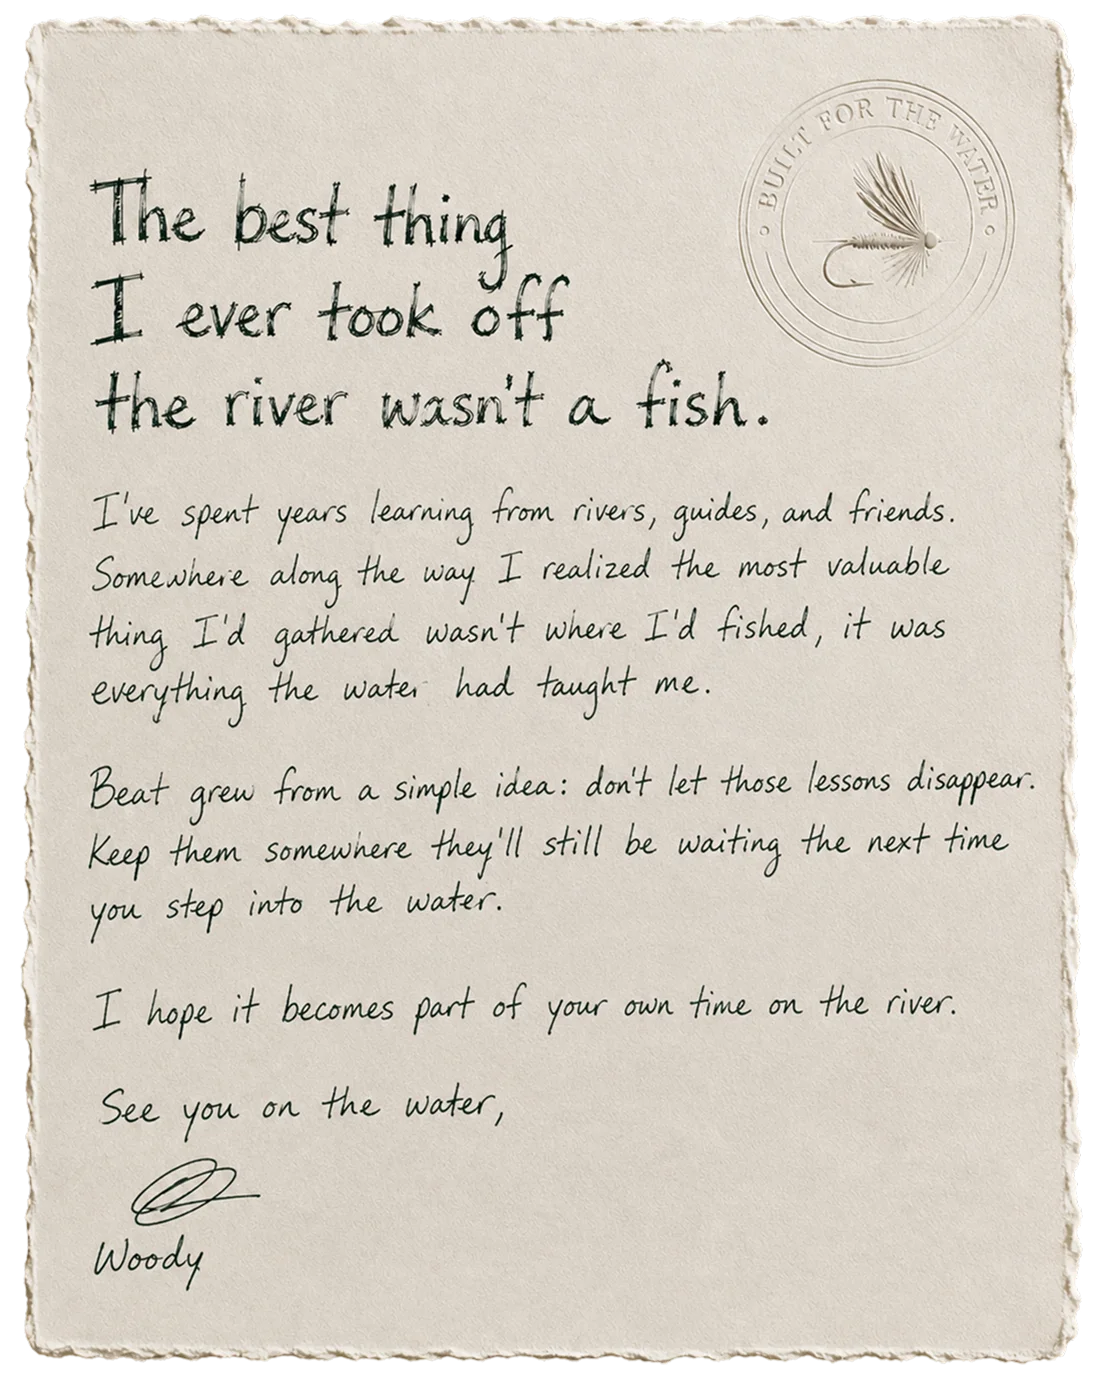 BUILT FOR THE WATER
The best thing
I ever took off
the river wasn't a fish.
I've spent years learning from rivers, guides, and friends.
Somewhere along the way I realized the most valuable
thing I'd gathered wasn't where I'd fished, it was
everything the water had taught me.
Beat grew from a simple idea: don't let those lessons disappear.
Keep them somewhere they'll still be waiting the next time
you step into the water.
I hope it becomes part of your own time on the river.
See you on the water,
Woody